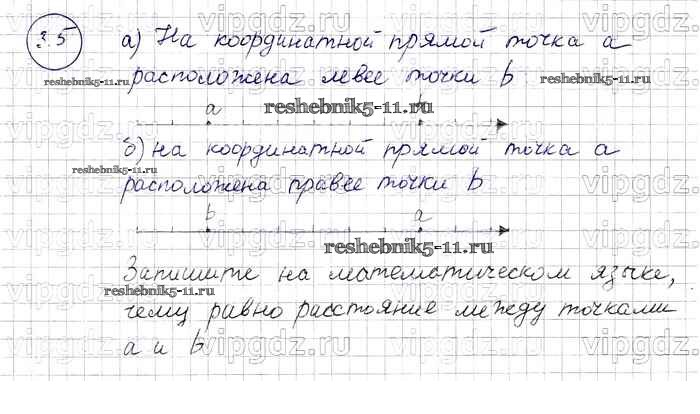 3.5 а) На координатной прямой точка a
расположена левее точки b
a b
б) на координатной прямой точка a
расположена правее точки b
b a
Запишите на математическом языке,
чему равно расстояние между точками
a и b
reshebnik5-11.ru
reshebnik5-11.ru
reshebnik5-11.ru
reshebnik5-11.ru
reshebnik5-11.ru
reshebnik5-11.ru
vipgdz.ru